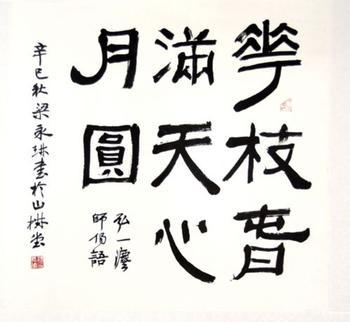 華枝春
滿天心
月圓
弘一灋
師偈語
辛巳秋梁永書於山堂